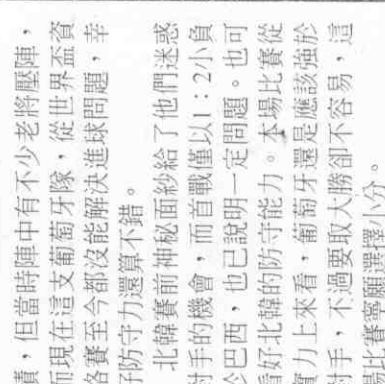 績，但當時陣中有不少老將壓陣，
而現在這支葡萄牙隊，從世界盃資
格賽至今都沒能解決進球問題，幸
好防守力還算不錯。
北韓賽前神秘面紗給了他們迷惑
對手的機會，而首戰僅以1：2小負
於巴西，也已說明一定問題。也可
看好北韓的防守能力。本場比賽從
實力上來看，葡萄牙還是應該強於
對手，不過要取大勝卻不容易，這
場比賽寧願選擇小分。